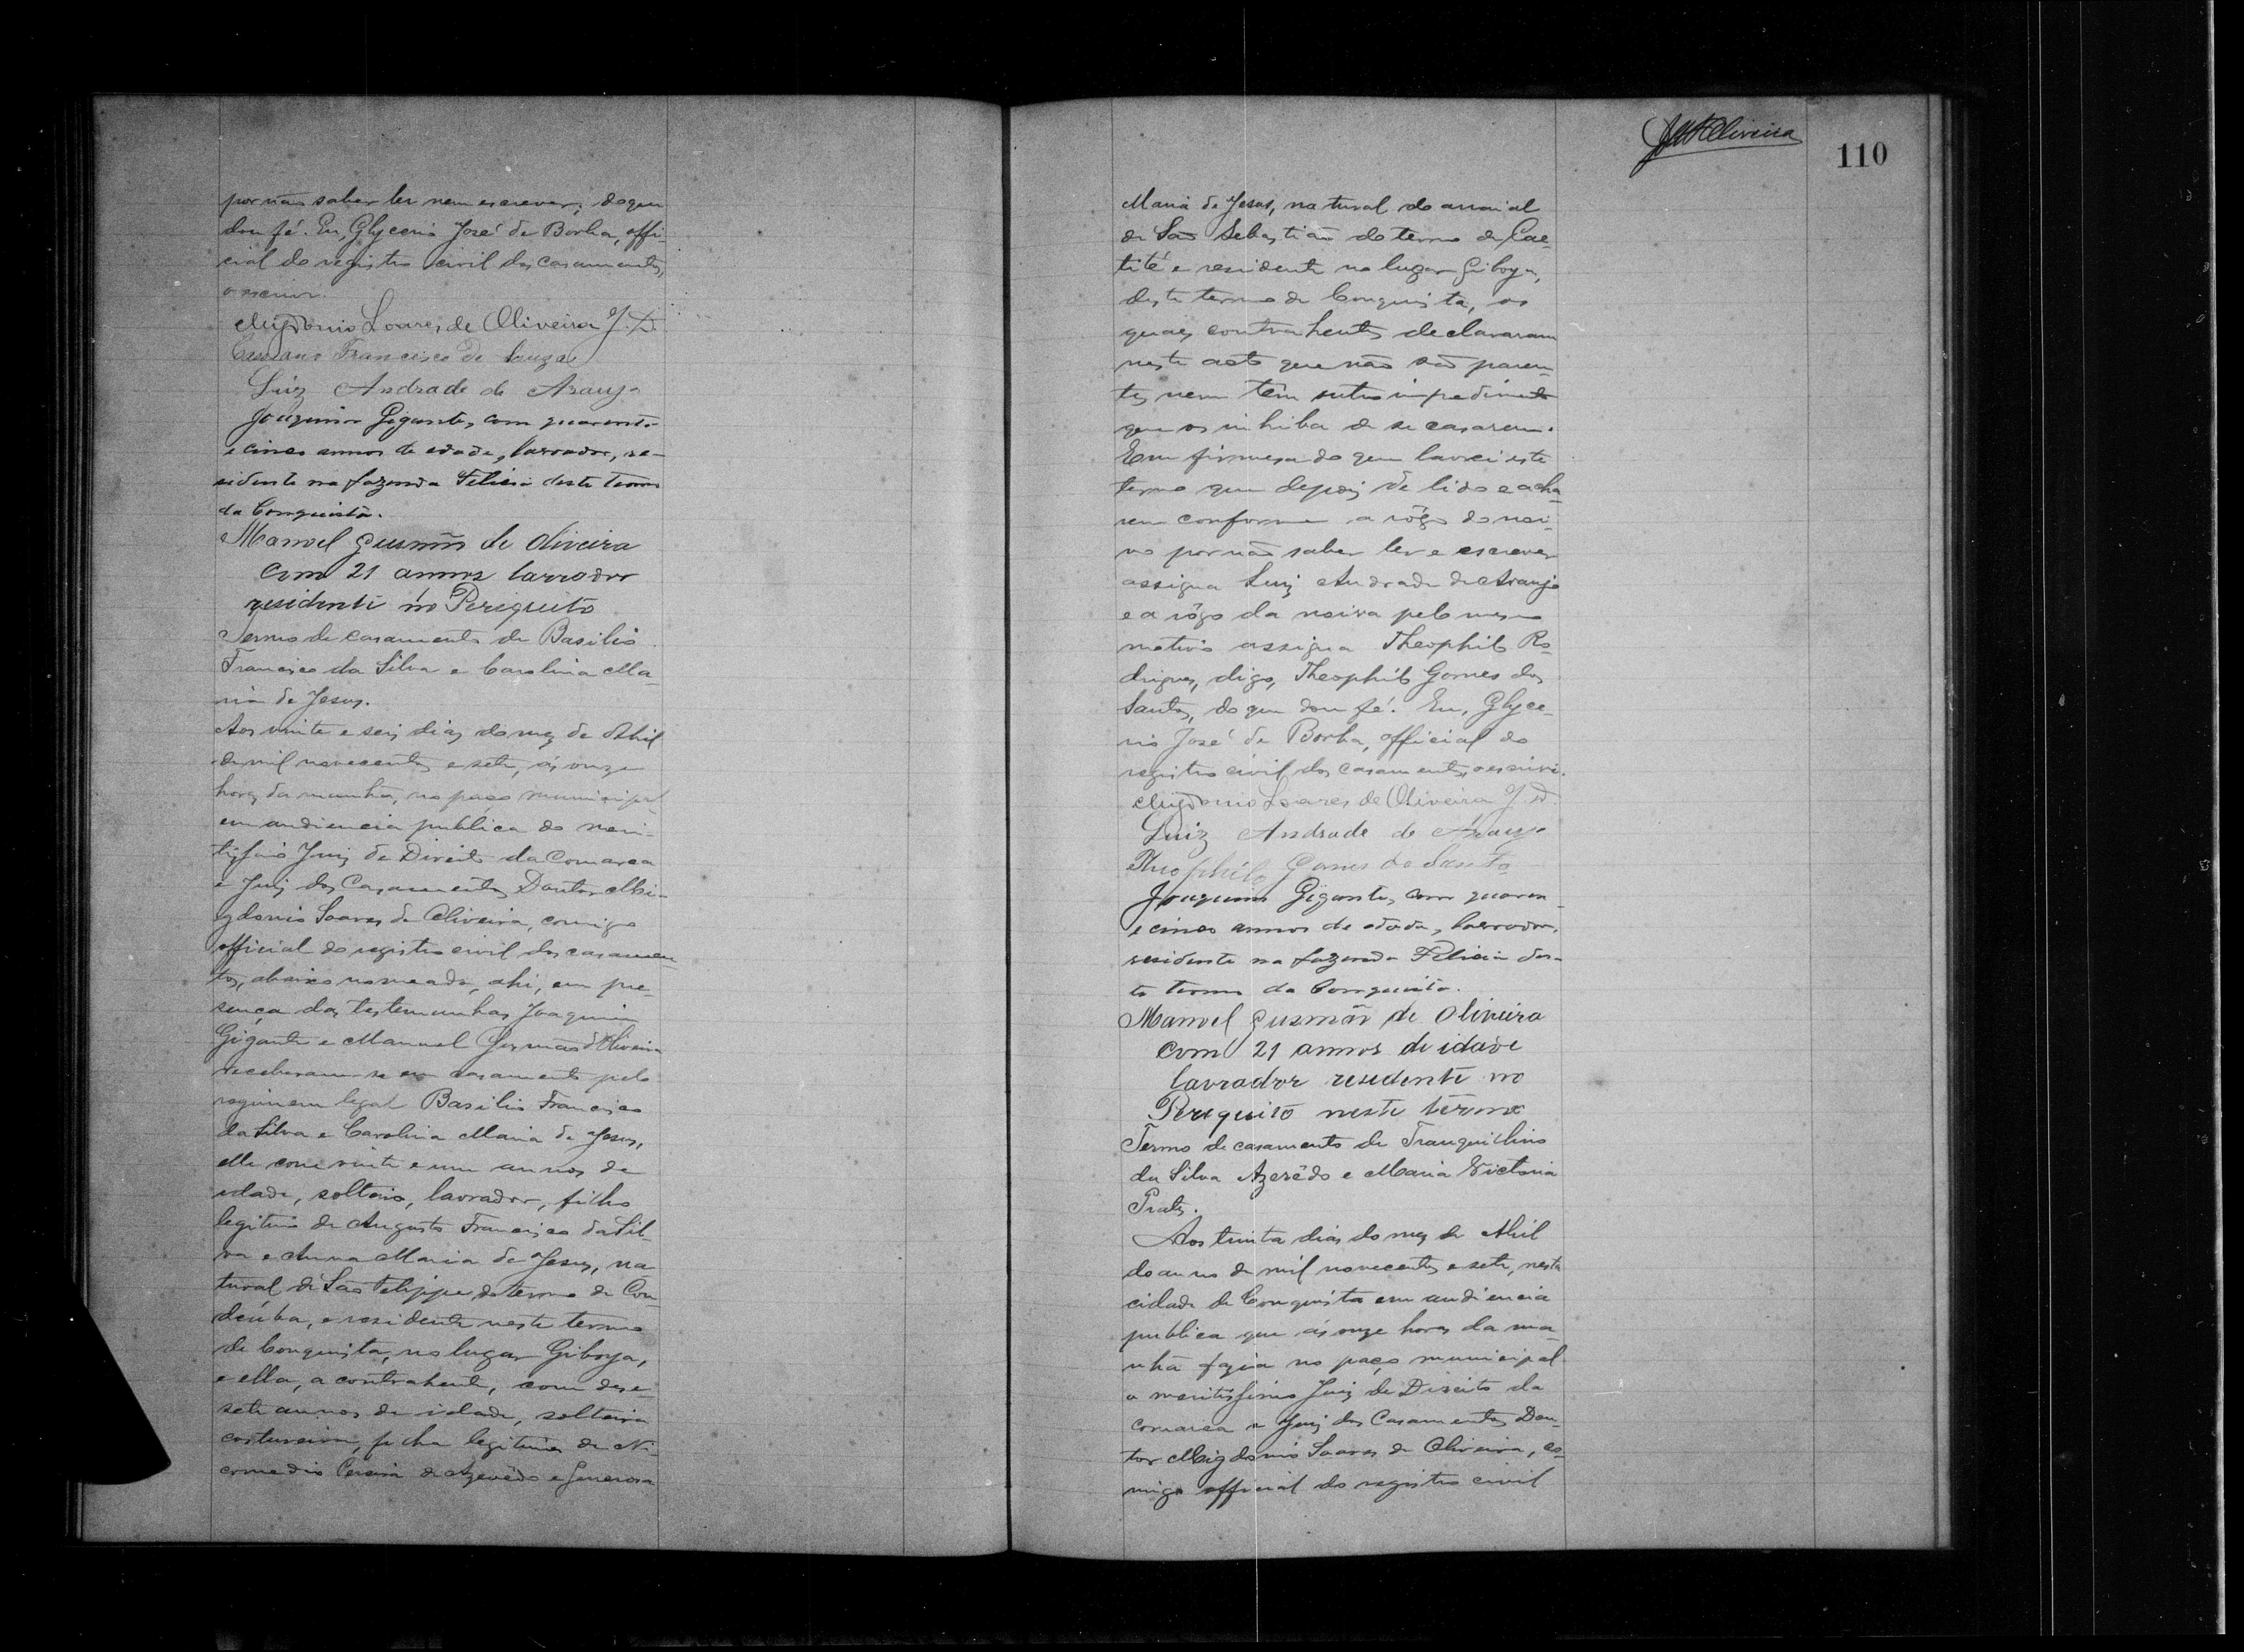 por não saber ler nem escrever; do que
dou fé. Eu, Glycerio José de Borba, offi-
cial do registro civil dos casamentos,
o escrevi.
Migdonio Soares de Oliveira J. D.
Francisco de Souza
Luiz Andrade de Araujo
Joaquim Gigante, com quarenta
e cinco annos de edade, lavrador, re-
sidente na fazenda Felicia deste termo
da Conquista.
Manoel Gusmão de Oliveira
com 21 annos lavrador
residente no Periquito
Termo de casamento de Basilio
Francisco da Silva e Carolina Ma-
ria de Jesus.
Aos vinte e seis dias do mez de Abril
de mil novecentos e sete, ás onze
horas da manhã, no paço municipal
em audiencia publica do meri-
tissimo Juiz de Direito da Comarca
e Juiz dos Casamentos Doutor Mi-
gdonio Soares de Oliveira, comigo
official do registro civil dos casamen-
tos, abaixo nomeado, ahi, em pre-
sença das testemunhas Joaquim
Gigante e Manuel Gusmão d'Oliveira
receberam-se em casamento pelo
regimem legal Basilio Francisco
da Silva e Carolina Maria de Jesus,
elle com vinte e um annos de
idade, solteiro, lavrador, filho
legitimo de Augusto Francisco da Sil-
va e Anna Maria de Jesus, na-
tural de São Felippe do termo de Con-
deúba, e residente neste termo
de Conquista, no lugar Giboya,
e ella, a contrahente, com dese-
sete annos de idade, solteira
costureira, filha legitima de Ni-
comedio Pereira de Azevêdo e Generosa
JMOliveira
110
Maria de Jesus, natural do arraial
de São Sebastião do termo de Cae-
tité e residente no lugar Giboya,
deste termo de Conquista, os
quaes contrahentes declararam
neste acto que não são paren-
tes nem têm outro impedimento
que os inhiba de se casarem.
Em firmesa do que lavrei este
termo que depois de lido e acha-
rem conforme a rôgo do noi-
vo por não saber ler e escrever
assigna Luiz Andrade de Araujo
e a rôgo da noiva pelo mesmo
motivo assigna Theophilo Ro-
drigues, digo, Theophilo Gomes dos
Santos, do que dou fé. Eu, Glyce-
rio José de Borba, official do
registro civil dos casamentos, o escrivi.
Migdonio Soares de Oliveira J. D.
Luiz Andrade de Araujo
Theophilo Gomes do Santo
Joaquim Gigante, com quaren-
e cinco annos de edade, lavrador,
residente na fazenda Felicia des-
te termo da Conquista.
Manoel Gusmão de Oliveira
com 21 annos de idade
lavrador residente no
Periquito neste termo
Termo de casamento de Tranquilino
da Silva Azerêdo e Maria Victoria
Prates.
Aos trinta dias do mez de Abril
do anno de mil novecentos e sete, nesta
cidade de Conquista em audiencia
publica que ás onze horas da ma-
nhã fazia no paço municipal
o meritissimo Juiz de Direito da
comarca e Juiz dos Casamentos Dou-
tor Migdonio Soares de Oliveira, co-
migo official do registro civil